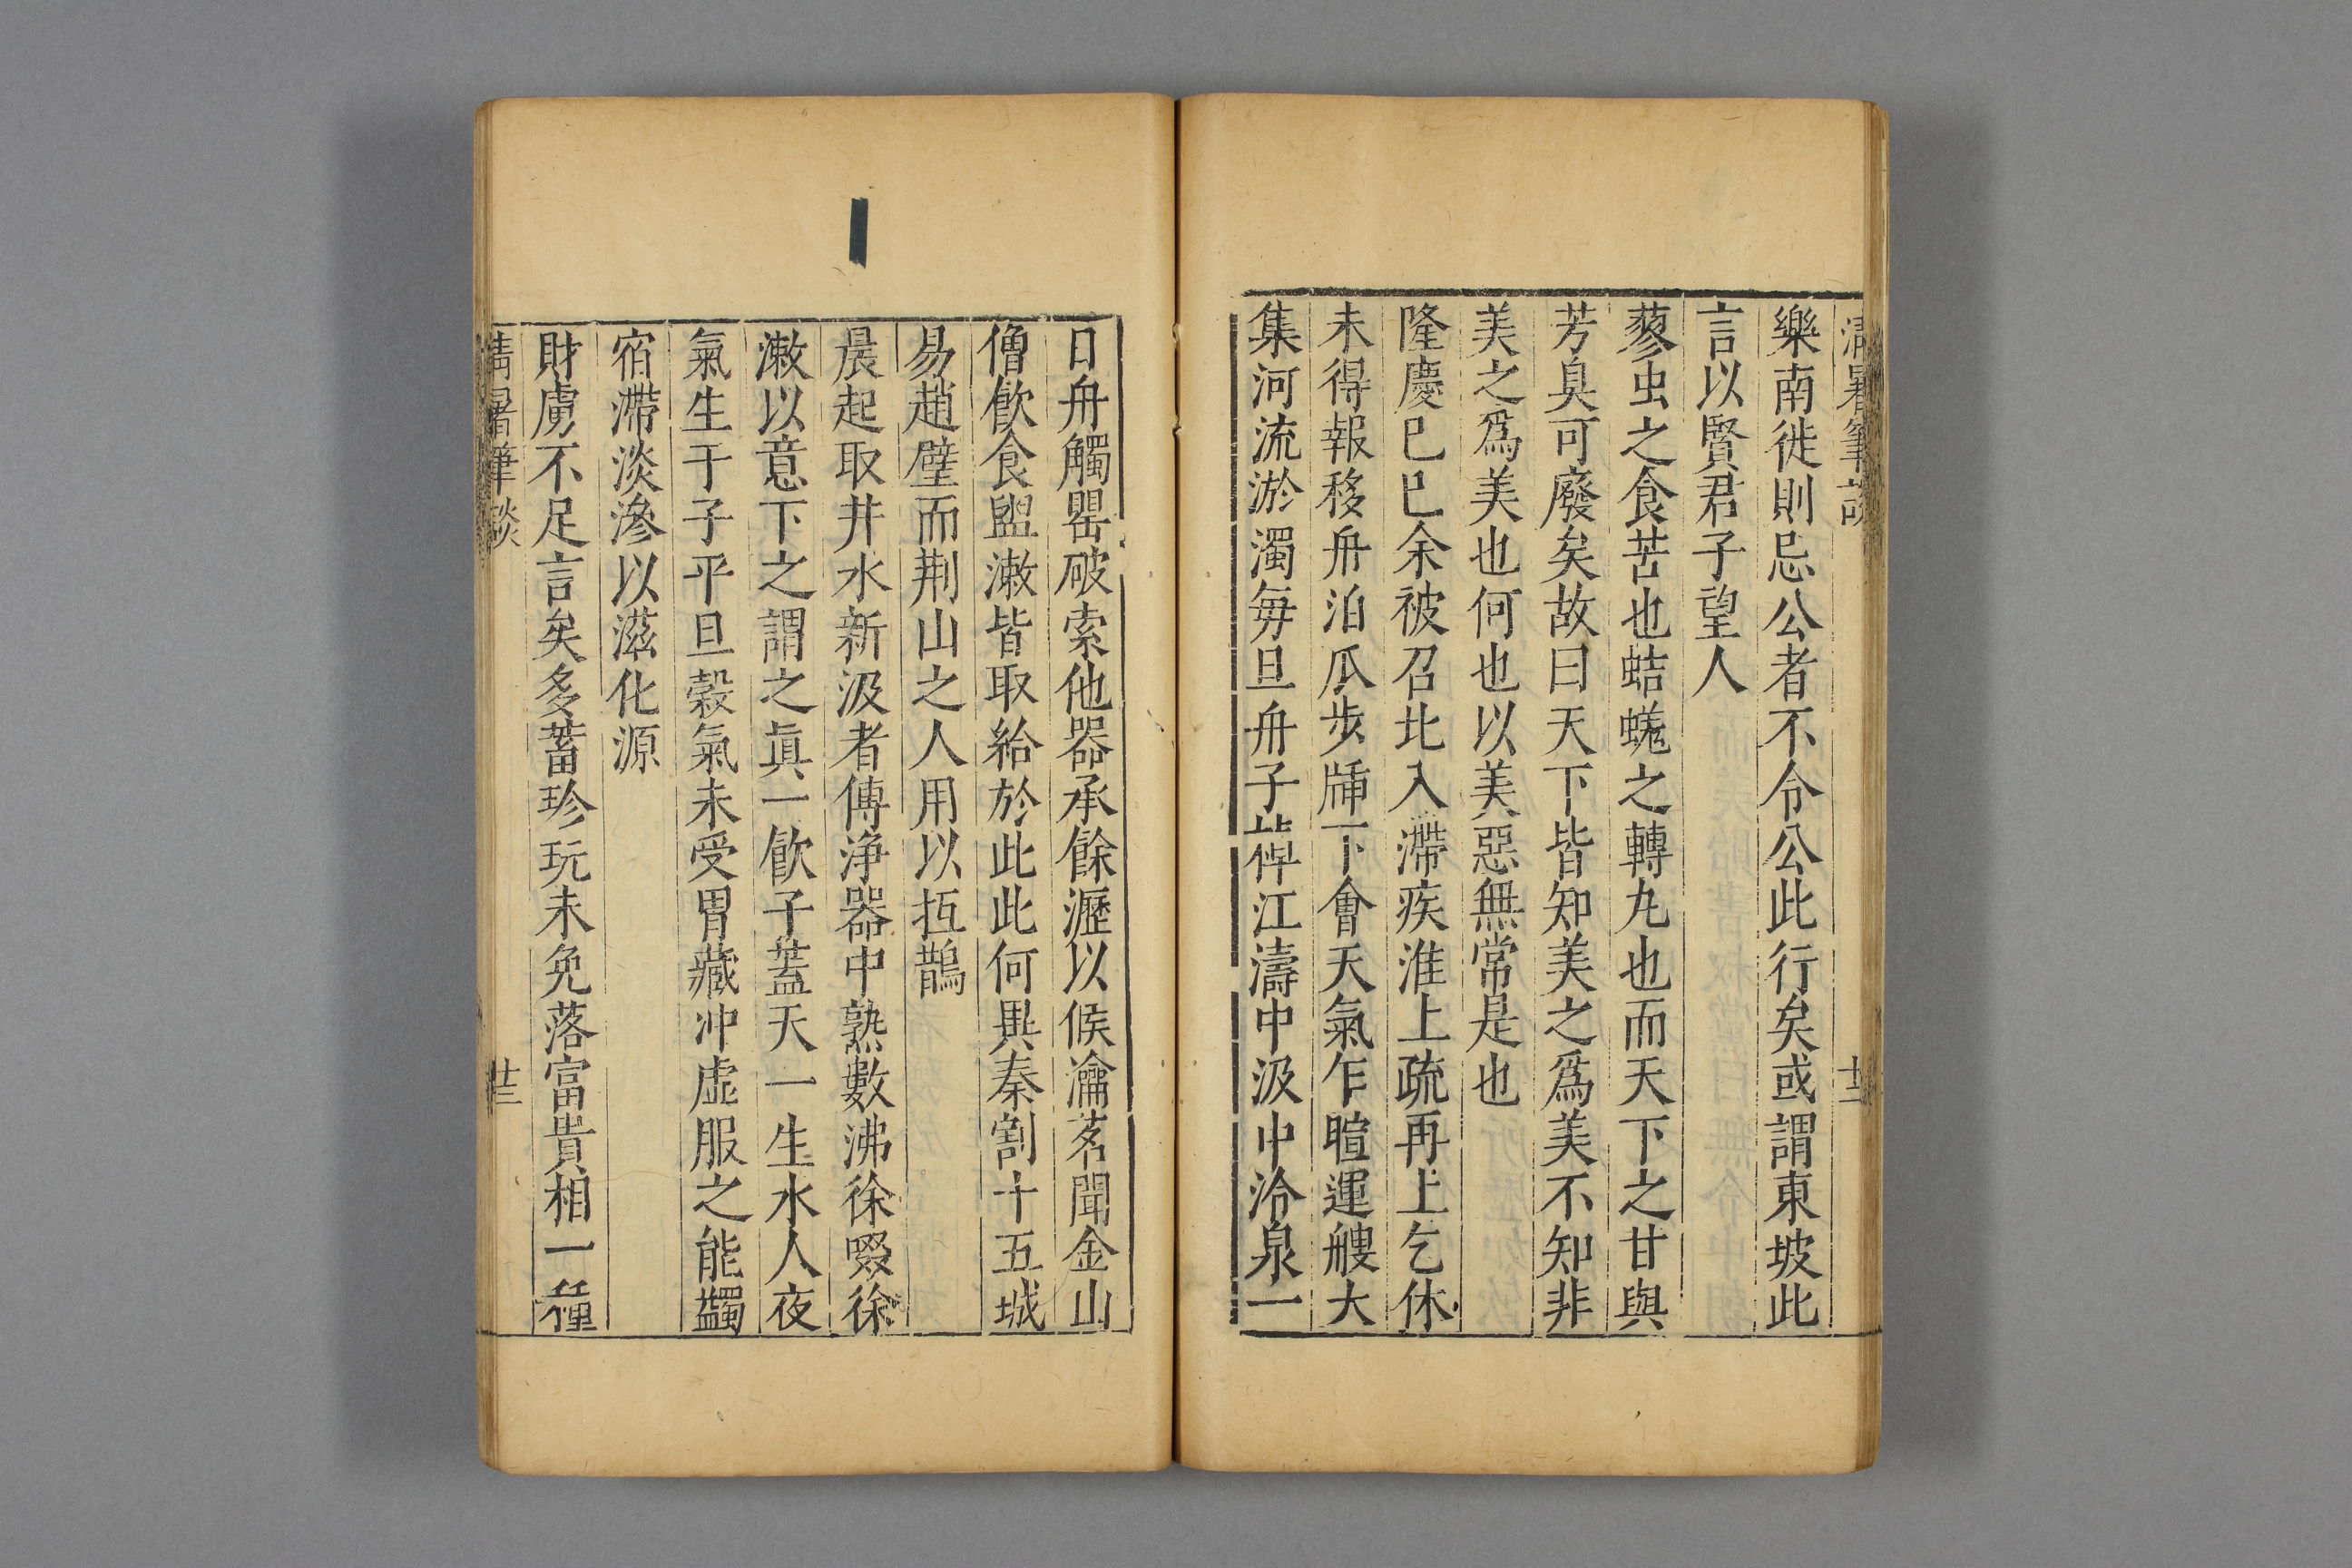 清暑筆談
廿二
樂南徙則忌公者不令公此行矣或謂東坡此
言以賢君子望人
蓼虫之食苦也蛣蜣之轉丸也而天下之甘與
芳臭可廢矣故曰天下皆知美之爲美不知非
美之爲美也何也以美惡無常是也
隆慶巳巳余被召北入滯疾淮上疏再上乞休
未得報移舟泊瓜步牐下會天氣乍暄運艘大
集河流淤濁毎旦舟子棹江濤中汲中泠泉一
日舟觸罌破索他器承餘瀝以候瀹茗聞金山
僧飲食盥漱皆取給於此此何異秦割十五城
易趙璧而荆山之人用以抵鵲
晨起取井水新汲者傳浄器中熟數沸徐啜徐
漱以意下之謂之眞一飲子蓋天一生水人夜
氣生于子平旦穀氣未受胃藏冲虛服之能蠲
宿滯淡滲以滋化源
財虜不足言矣多蓄珍玩未免落富貴相一種
清暑筆談
廿三